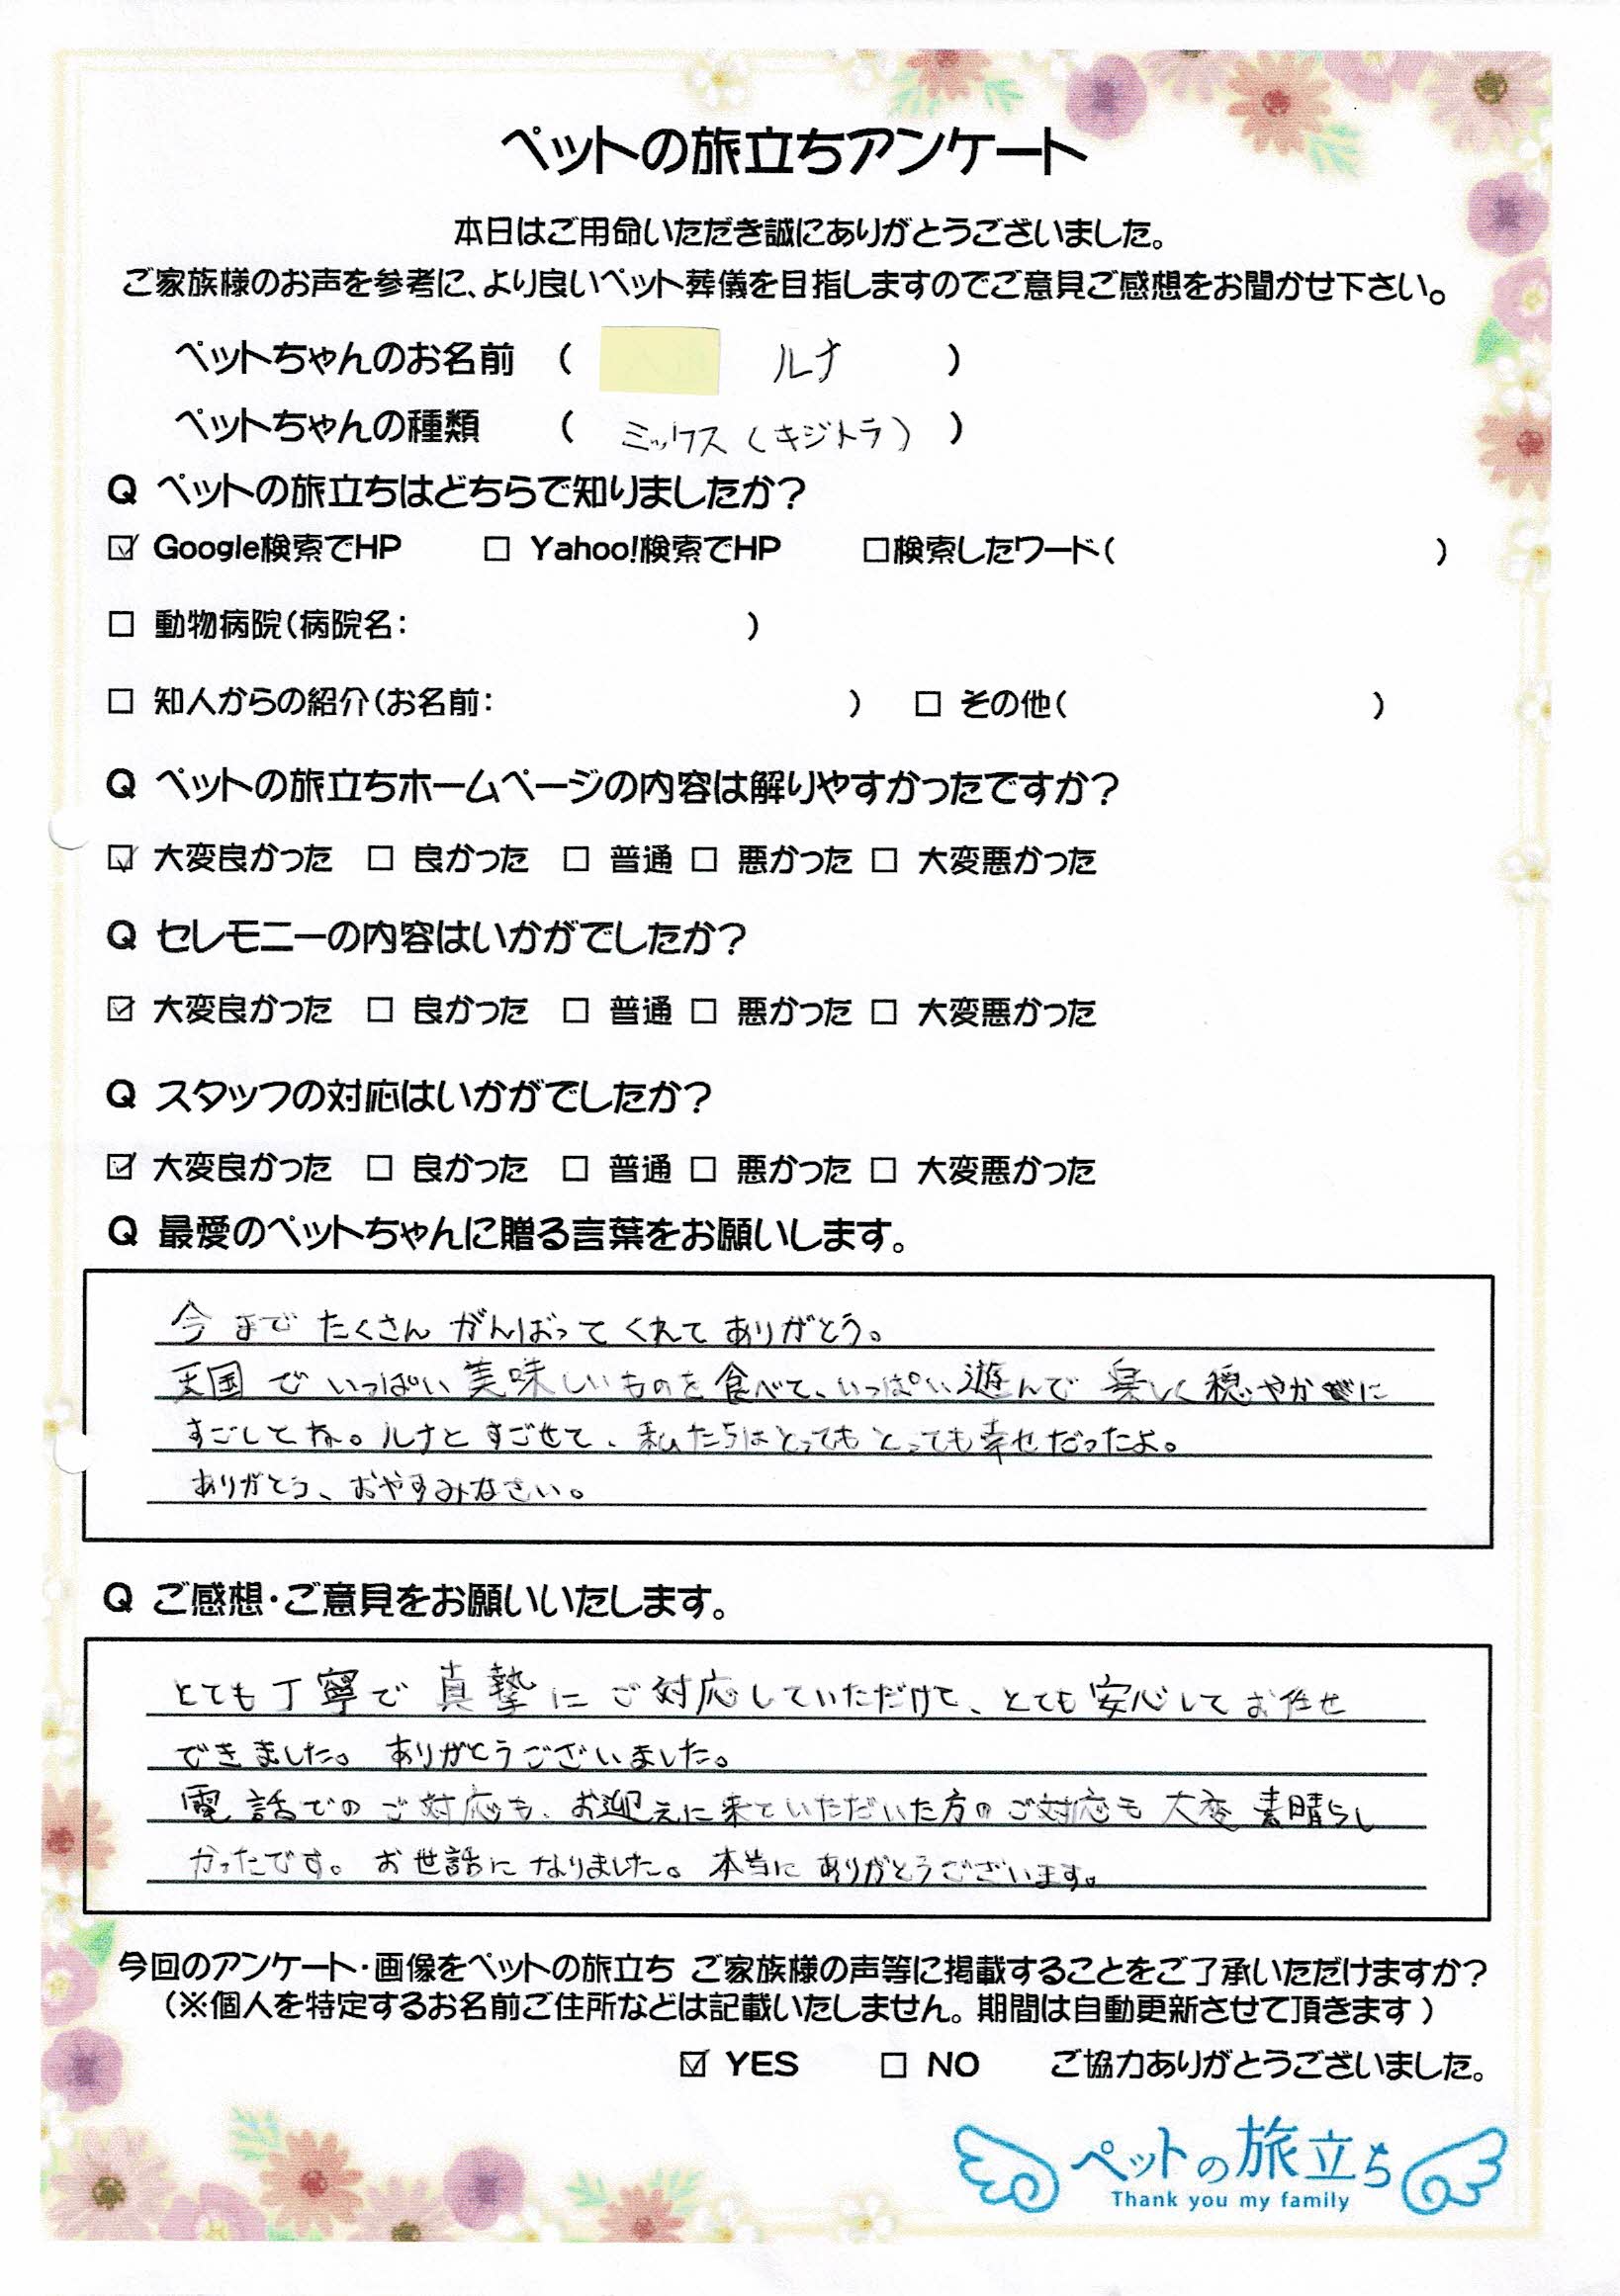 ペットの旅立ちアンケート
本日はご用命いただき誠にありがとうございました。
ご家族様のお声を参考に、より良いペット葬儀を目指しますのでご意見ご感想をお聞かせ下さい。
ペットちゃんのお名前 ( ルナ )
ペットちゃんの種類 ( ミックス(キジトラ) )
Q ペットの旅立ちはどちらで知りましたか?
☑ Google検索でHP □ Yahoo!検索でHP □検索したワード( )
□ 動物病院(病院名: )
□ 知人からの紹介(お名前: ) □ その他( )
Q ペットの旅立ちホームページの内容は解りやすかったですか?
☑ 大変良かった □ 良かった □ 普通 □ 悪かった □ 大変悪かった
Q セレモニーの内容はいかがでしたか?
☑ 大変良かった □ 良かった □ 普通 □ 悪かった □ 大変悪かった
Q スタッフの対応はいかがでしたか?
☑ 大変良かった □ 良かった □ 普通 □ 悪かった □ 大変悪かった
Q 最愛のペットちゃんに贈る言葉をお願いします。
今まで たくさん がんばって くれて ありがとう。
天国で いっぱい 美味しいものを 食べて、いっぱい 遊んで 楽しく 穏やかに
すごしてね。ルナと すごせて、私たちは とっても とっても 幸せだったよ。
ありがとう、おやすみなさい。
Q ご感想・ご意見をお願いいたします。
とても丁寧で 真摯に ご対応していただけて、とても安心して お任せ
できました。ありがとうございました。
電話での ご対応も、お迎えに来ていただいた方の ご対応も 大変 素晴らし
かったです。お世話に なりました。本当に ありがとうございます。
今回のアンケート・画像をペットの旅立ち ご家族様の声等に掲載することをご了承いただけますか?
(※個人を特定するお名前ご住所などは記載いたしません。期間は自動更新させて頂きます)
☑ YES □ NO ご協力ありがとうございました。
ペットの旅立ち
Thank you my family